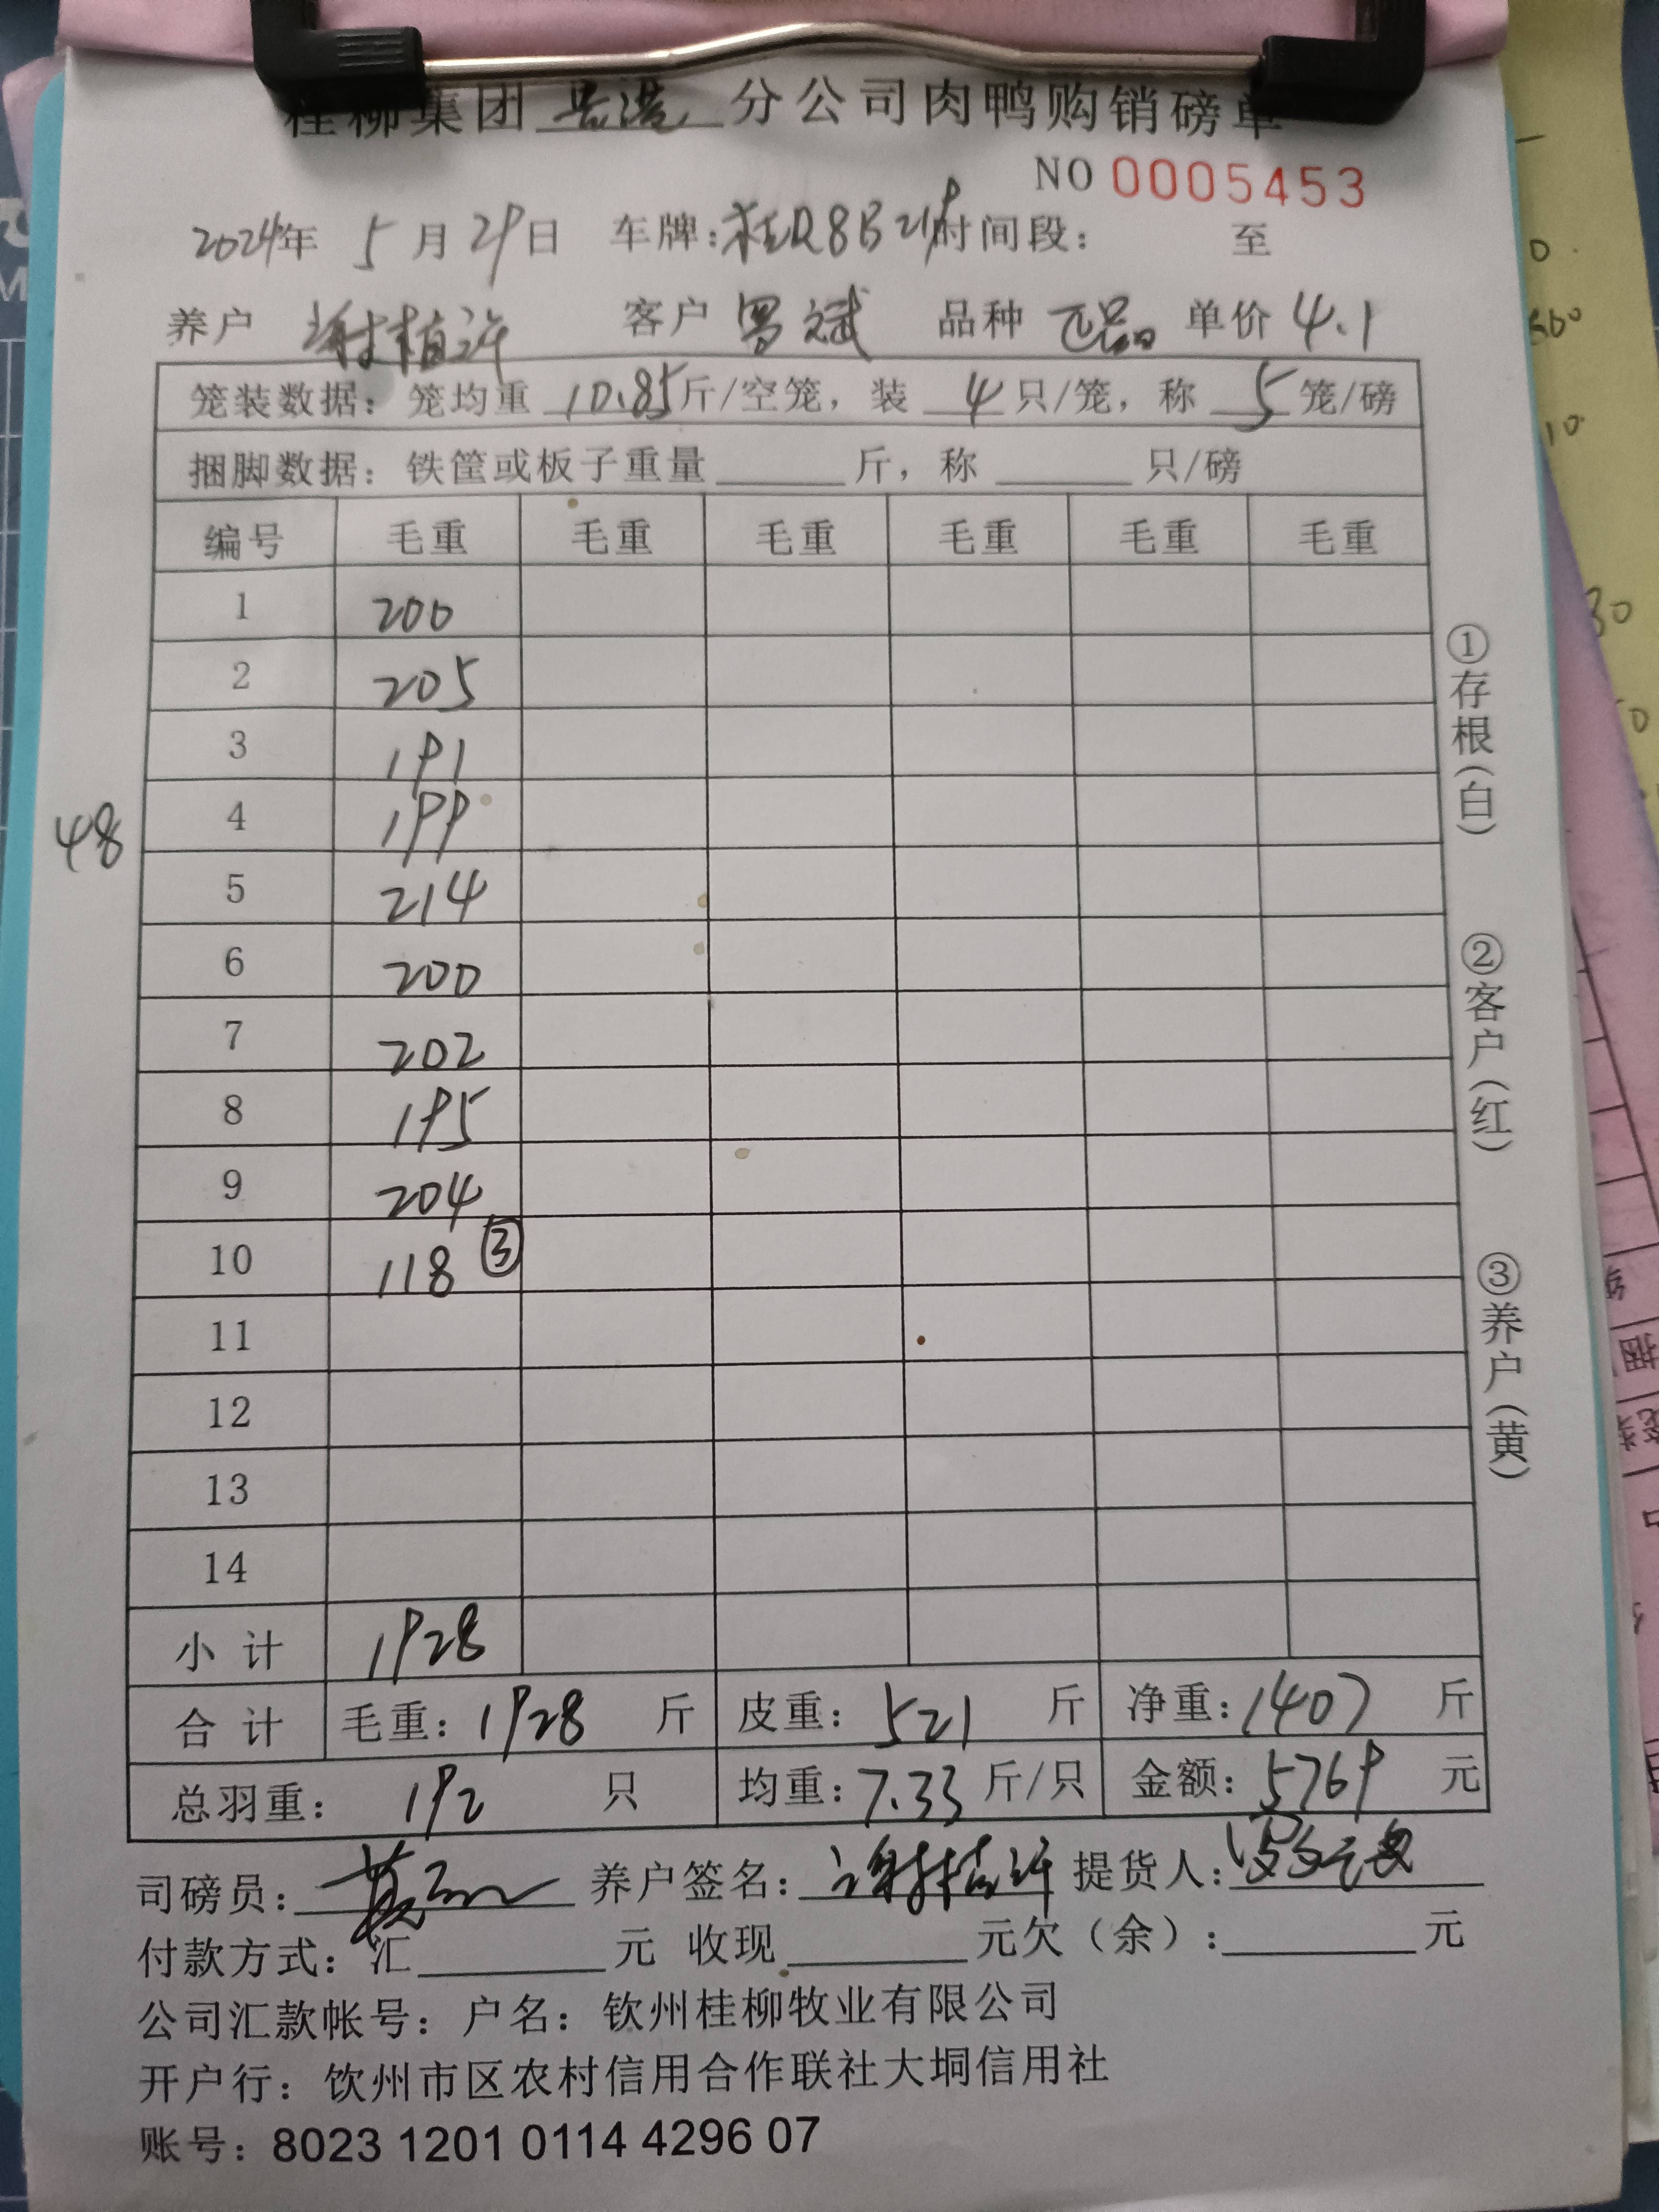 桂柳集团 分公司肉鸭购销磅单
NO 0005453
2024年 5月29日 车牌:桂R8B219 时间段: 至
养户 谢植许 客户 罗斌 品种 正品 单价 4.1
笼装数据: 笼均重 10.85斤/空笼, 装 4 只/笼, 称 5 笼/磅
捆脚数据: 铁筐或板子重量 斤, 称 只/磅
编号 毛重 毛重 毛重 毛重 毛重 毛重
1 200
2 205
3 191
4 199
5 214
6 200
7 202
8 195
9 204
10 118 ③
11
12
13
14
48
小计 1928
合计 毛重: 1928 斤 皮重: 521 斤 净重: 1407 斤
总羽重: 192 只 均重: 7.33 斤/只 金额: 5769 元
司磅员: 养户签名: 谢植许 提货人:
付款方式: 汇 元 收现 元欠(余): 元
公司汇款帐号: 户名: 钦州桂柳牧业有限公司
开户行: 钦州市区农村信用合作联社大垌信用社
账号: 8023 1201 0114 4296 07
①存根(白)
②客户(红)
③养户(黄)